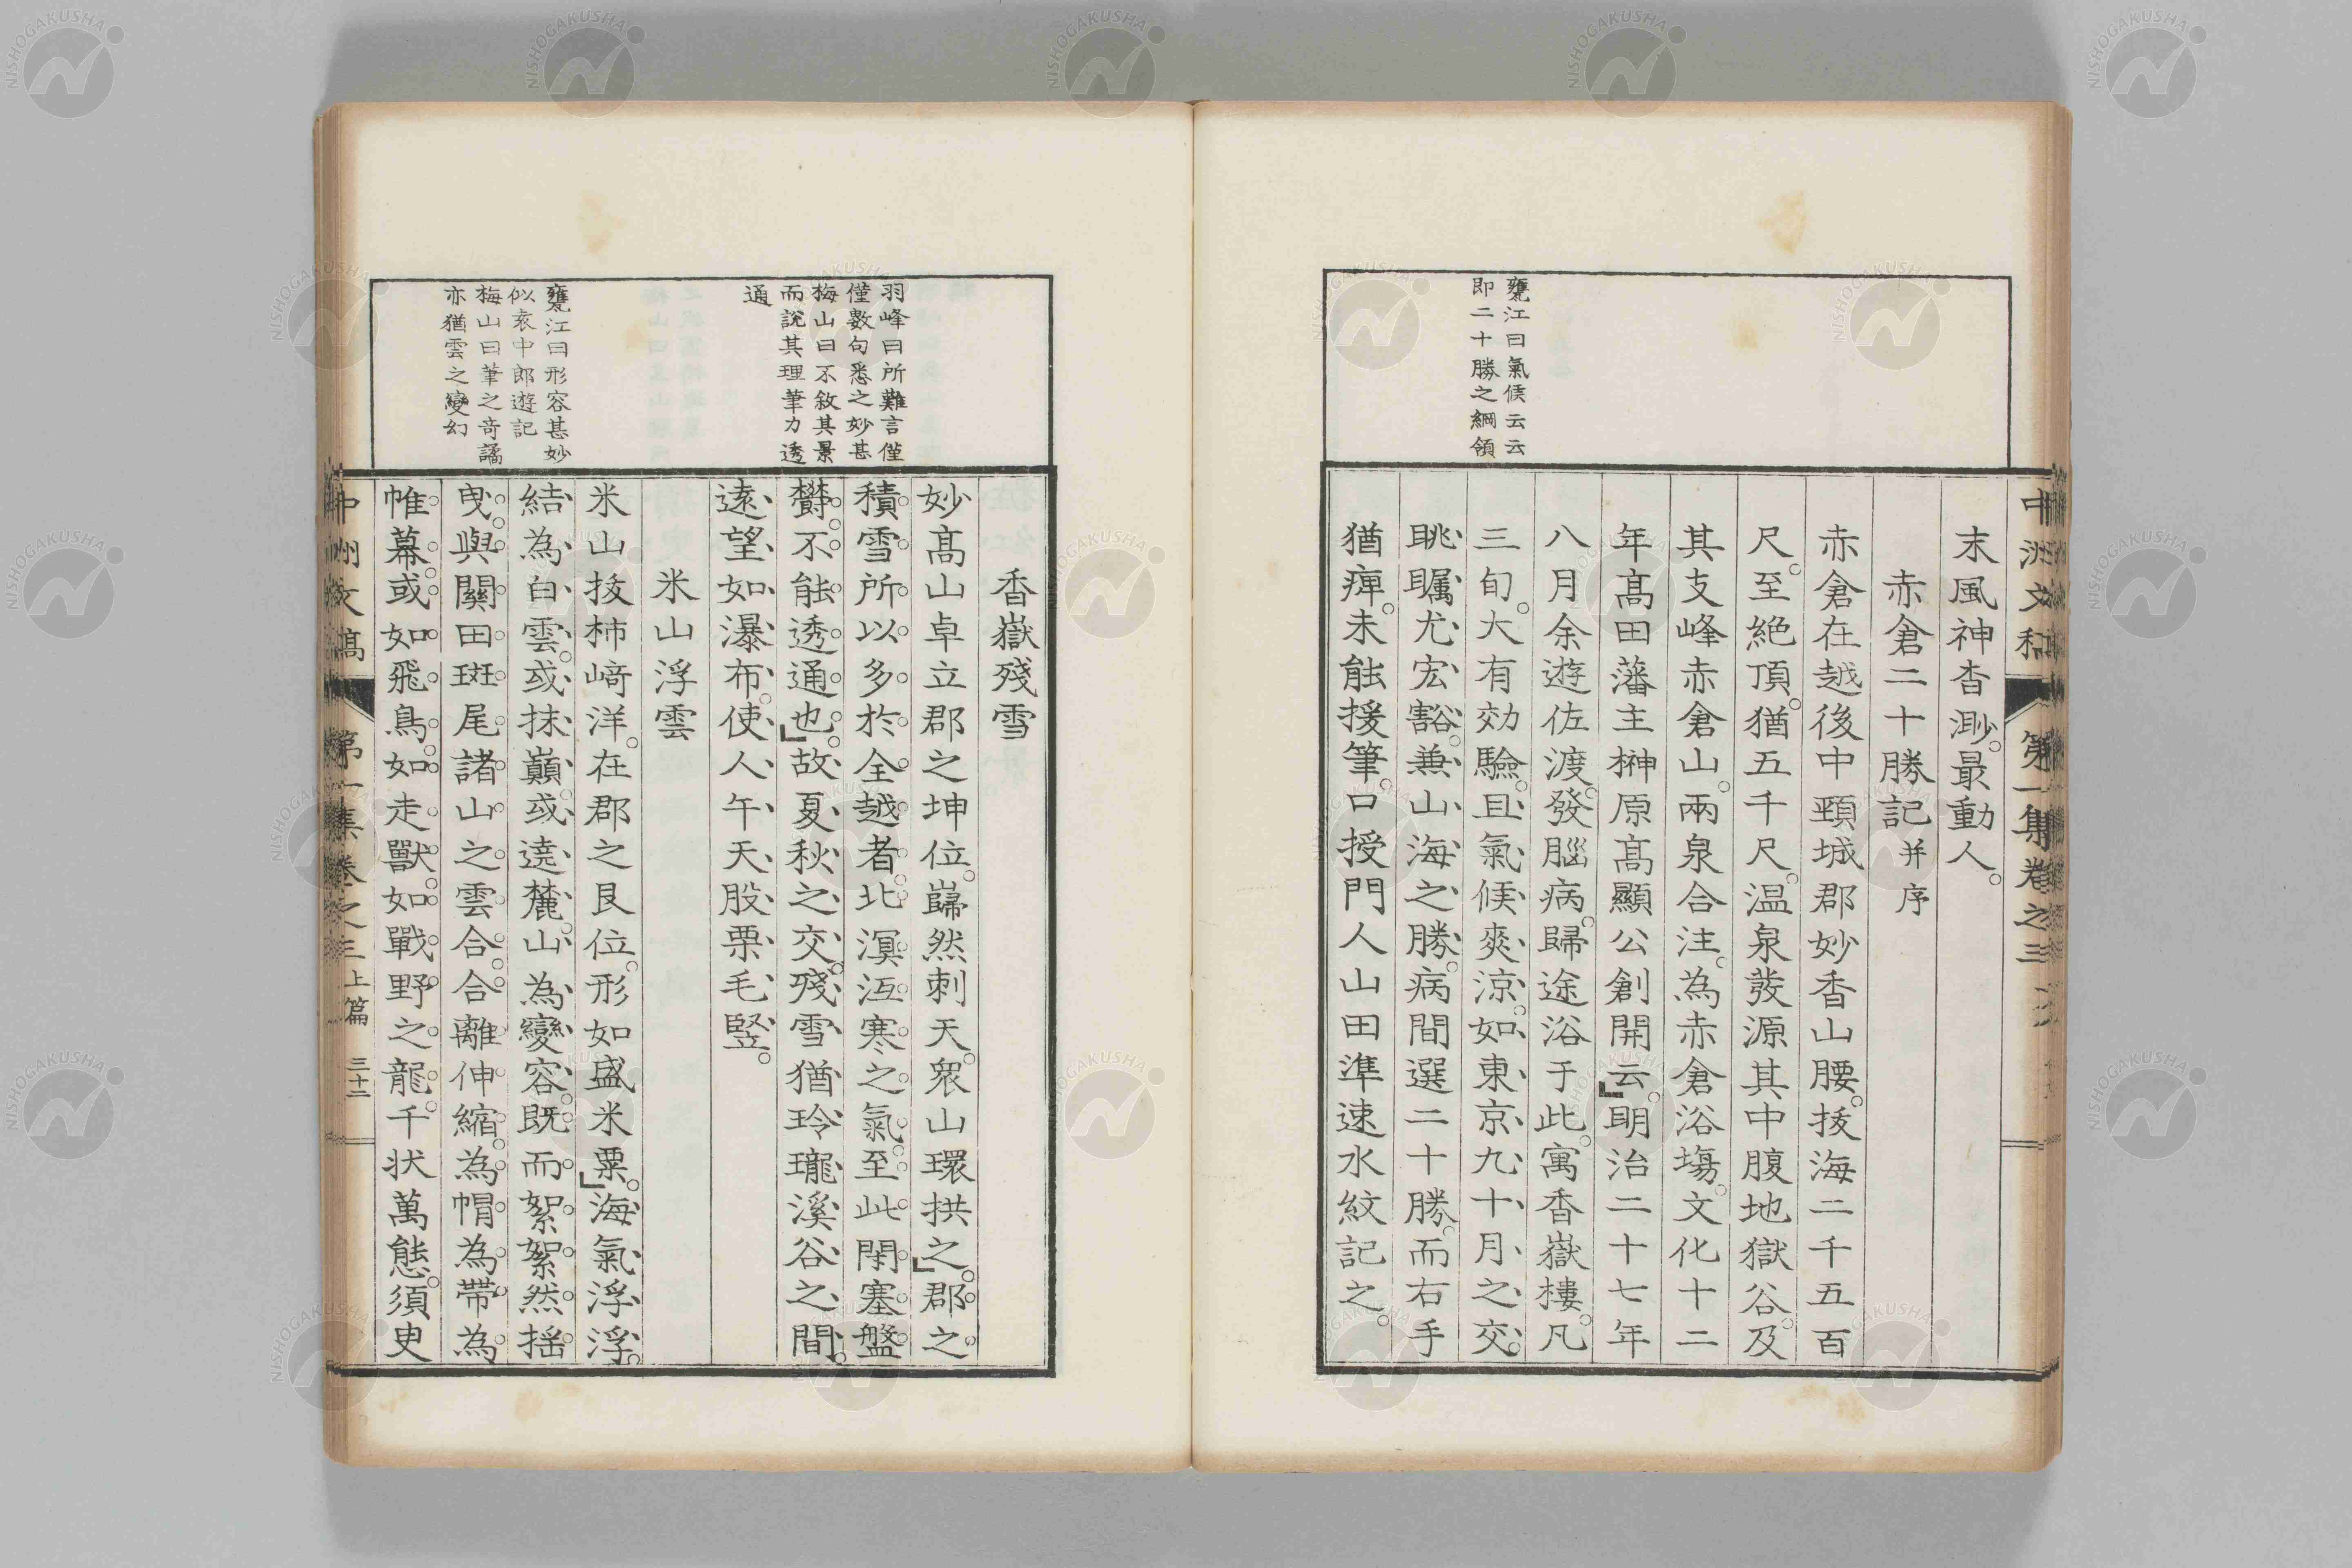 中洲文稿 第一集卷之三
甕江曰氣候云云
即二十勝之綱領
末風神杳渺。最動人。
赤倉二十勝記并序
赤倉在越後中頸城郡妙香山腰。抜海二千五百
尺。至絶頂。猶五千尺。温泉發源其中腹地獄谷。及
其支峰赤倉山。兩泉合注。為赤倉浴塲。文化十二
年髙田藩主榊原髙顯公創開云。明治二十七年
八月余遊佐渡。發腦病。歸途浴于此。寓香嶽樓。凡
三旬。大有効驗。且氣候爽涼。如東京九十月之交。
眺矚尤宏豁。兼山海之勝。病間選二十勝。而右手
猶痺。未能援筆。口授門人山田準速水紋記之。
羽峰曰所難言僅
僅數句悉之妙甚
梅山曰不敘其景
而説其理筆力透
通
甕江曰形容甚妙
似袁中郎遊記
梅山曰筆之奇譎
亦猶雲之變幻
香嶽殘雪
妙髙山卓立郡之坤位。巋然刺天。衆山環拱之。郡之
積雪所以多於全越者。北溟沍寒之氣。至此閉塞盤
欝。不能透通也。故夏秋之交。殘雪猶玲瓏溪谷之間。
遠望如瀑布。使人午天股栗毛竪。
米山浮雲
米山抜柿﨑洋。在郡之艮位。形如盛米粟。海氣浮浮。
結為白雲。或抹巓。或遶麓。山為變容。既而絮絮然揺
曳。與關田斑尾諸山之雲合。合離伸縮。為帽為帶為
帷幕。或如飛鳥。如走獸。如戰野之龍。千状萬態。須臾
中洲文稿 第一集卷之三上篇 三十二
NISHOGAKUSHA